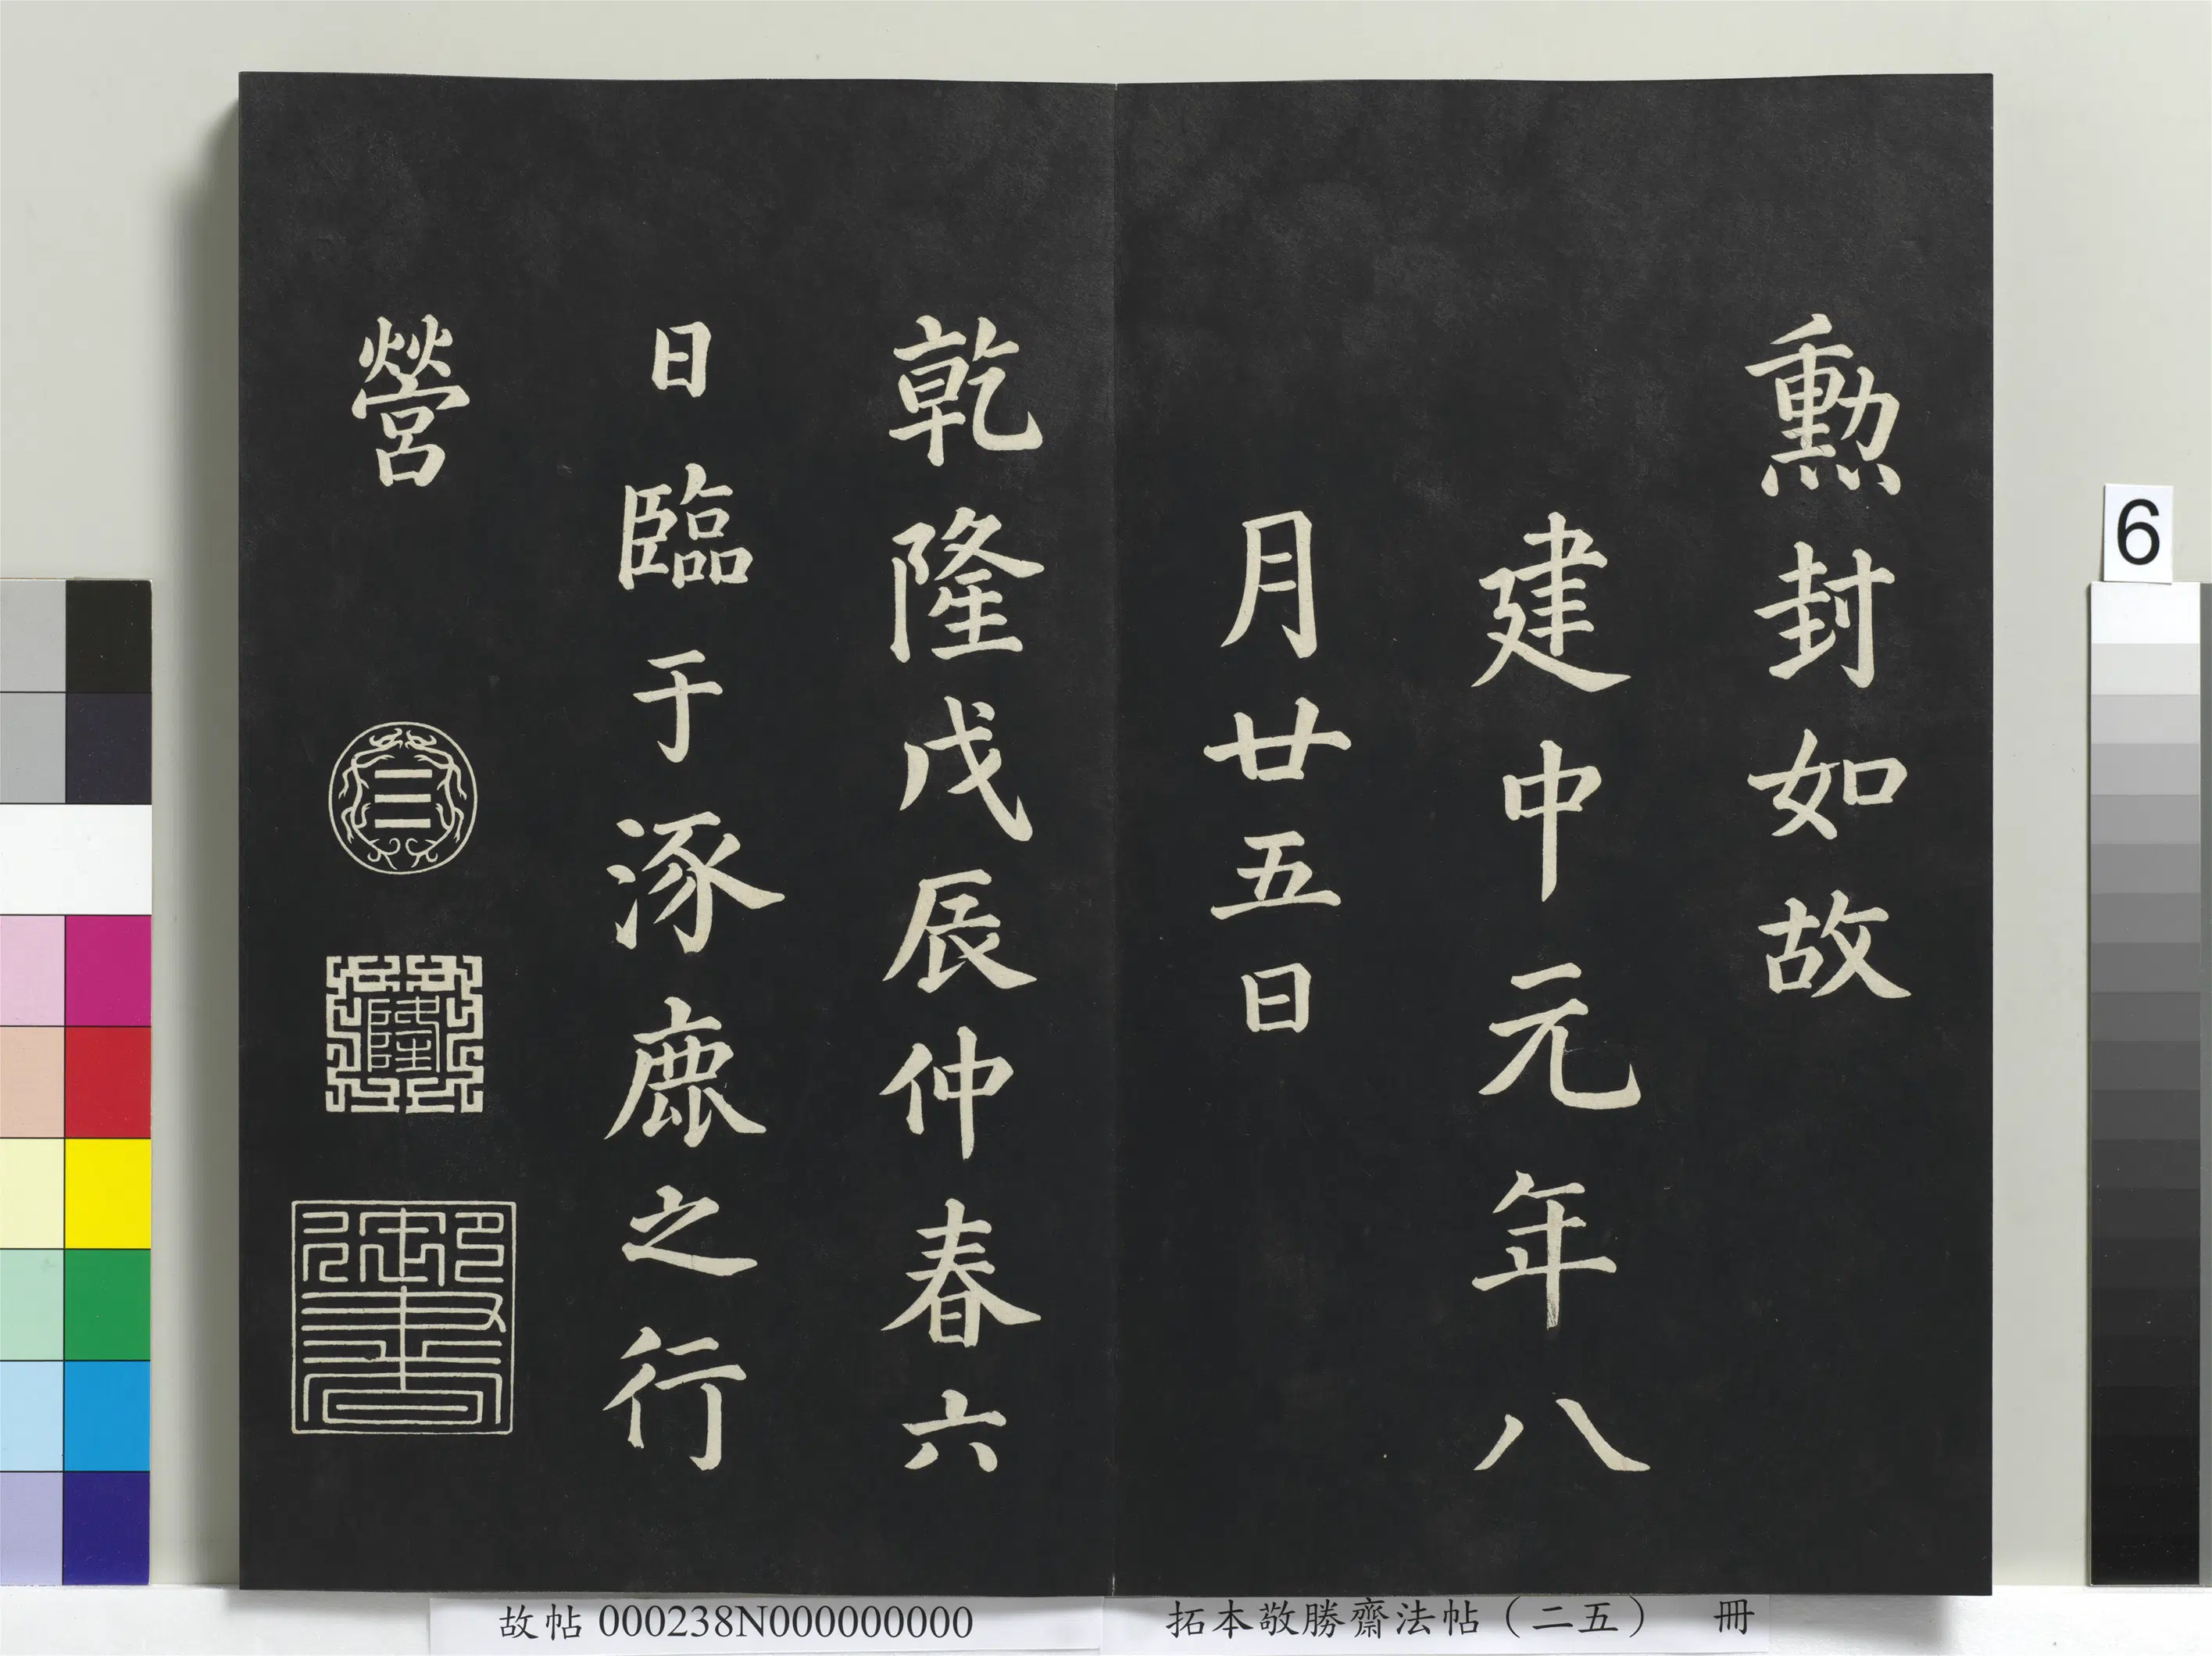 勲封如故
建中元年八
月廿五日
乾隆戊辰仲春六
日臨于涿鹿之行
營
乾
隆
御
書
6
故帖 000238N000000000
拓本敬勝齋法帖（二五） 冊